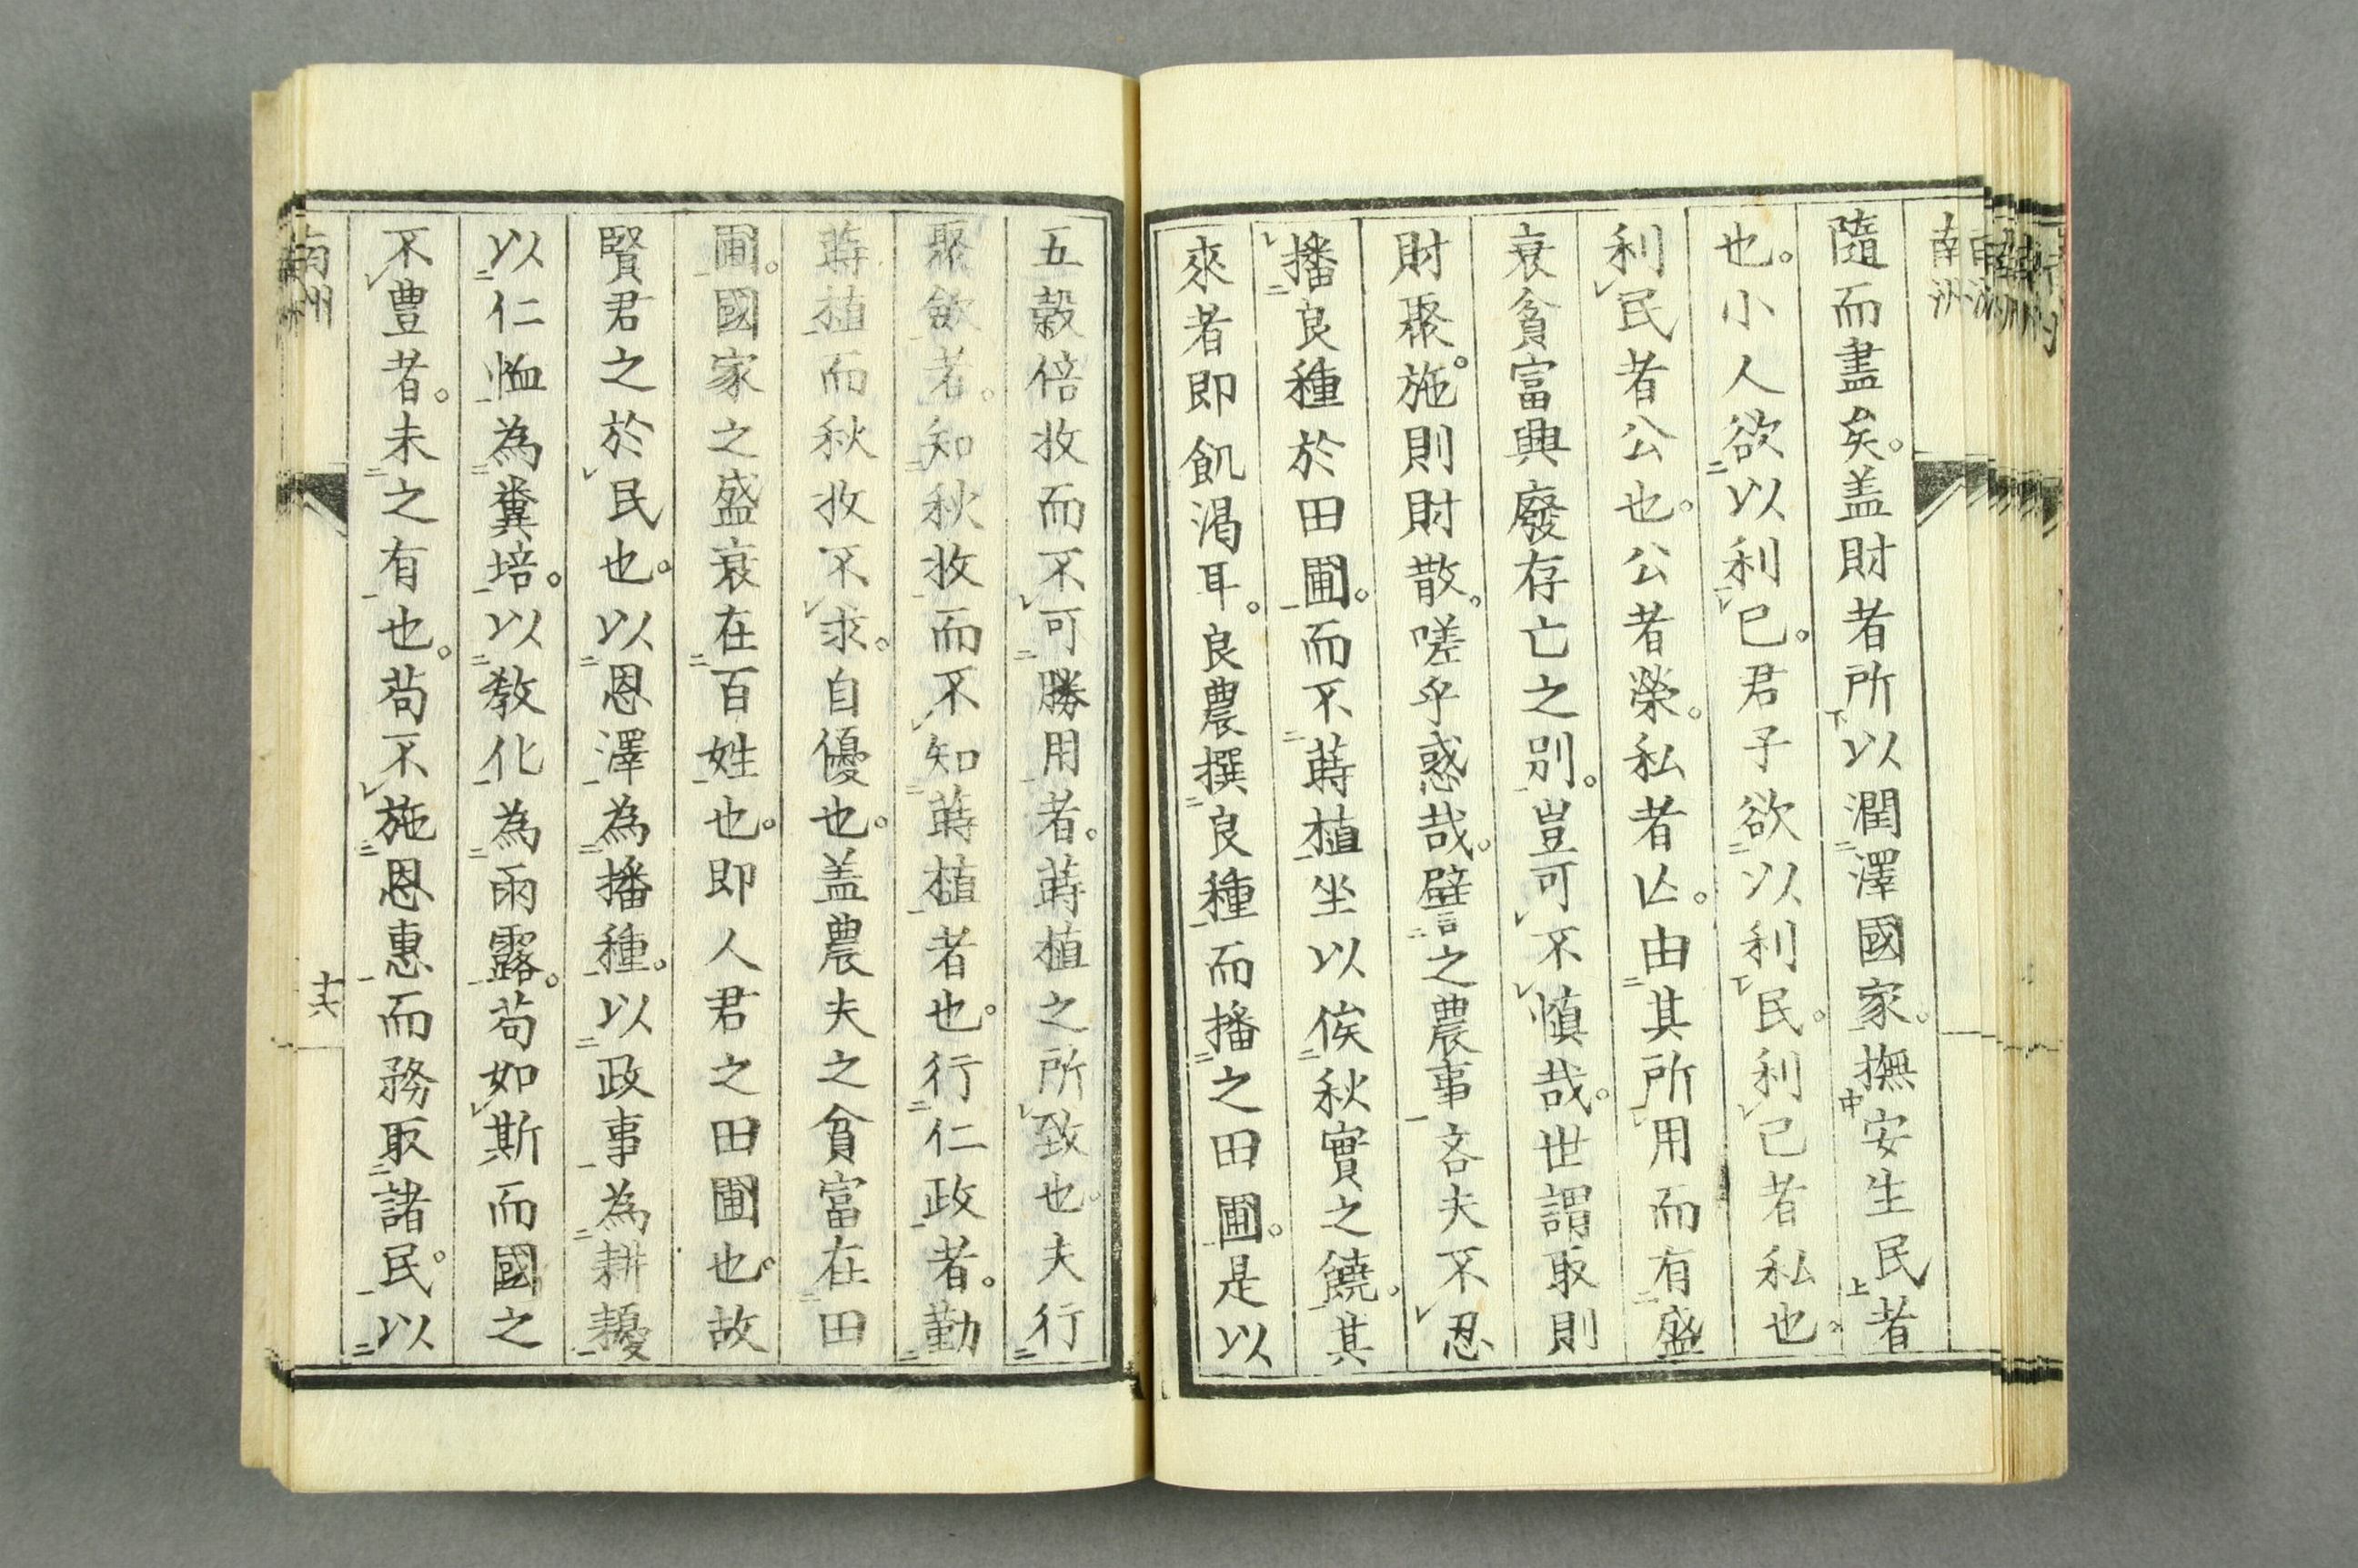 隨而盡矣。盖財者所以潤澤國家。撫安生民者
也。小人欲以利己。君子欲以利民。利己者私也。
利民者公也。公者榮。私者亾。由其所用而有盛
衰貧富興廢存亡之別。豈可不慎哉。世謂取則
財聚。施則財散。嗟乎惑哉。譬之農事吝夫不忍
播良種於田圃。而不蒔植坐以俟秋實之饒。其
來者即飢渴耳。良農撰良種而播之田圃。是以
五穀倍收而不可勝用者。蒔植之所致也。夫行
聚斂者。知秋收而不知蒔植者也。行仁政者。勤
蒔植而秋收不求。自優也。盖農夫之貧富在田
圃。國家之盛衰在百姓也。即人君之田圃也。故
賢君之於民也。以恩澤為播種。以政事為耕耰
以仁恤為糞培。以教化為雨露。苟如斯而國之
不豊者。未之有也。苟不施恩惠而務取諸民。以
南洲
十六